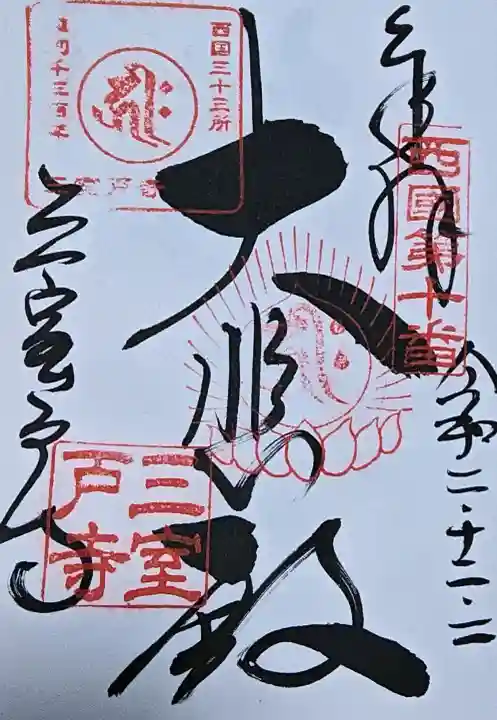 奉拝
西國第十番
令和二・十二・二
大悲殿
西国三十三所
三室戸寺
三室戸寺
三室戸寺